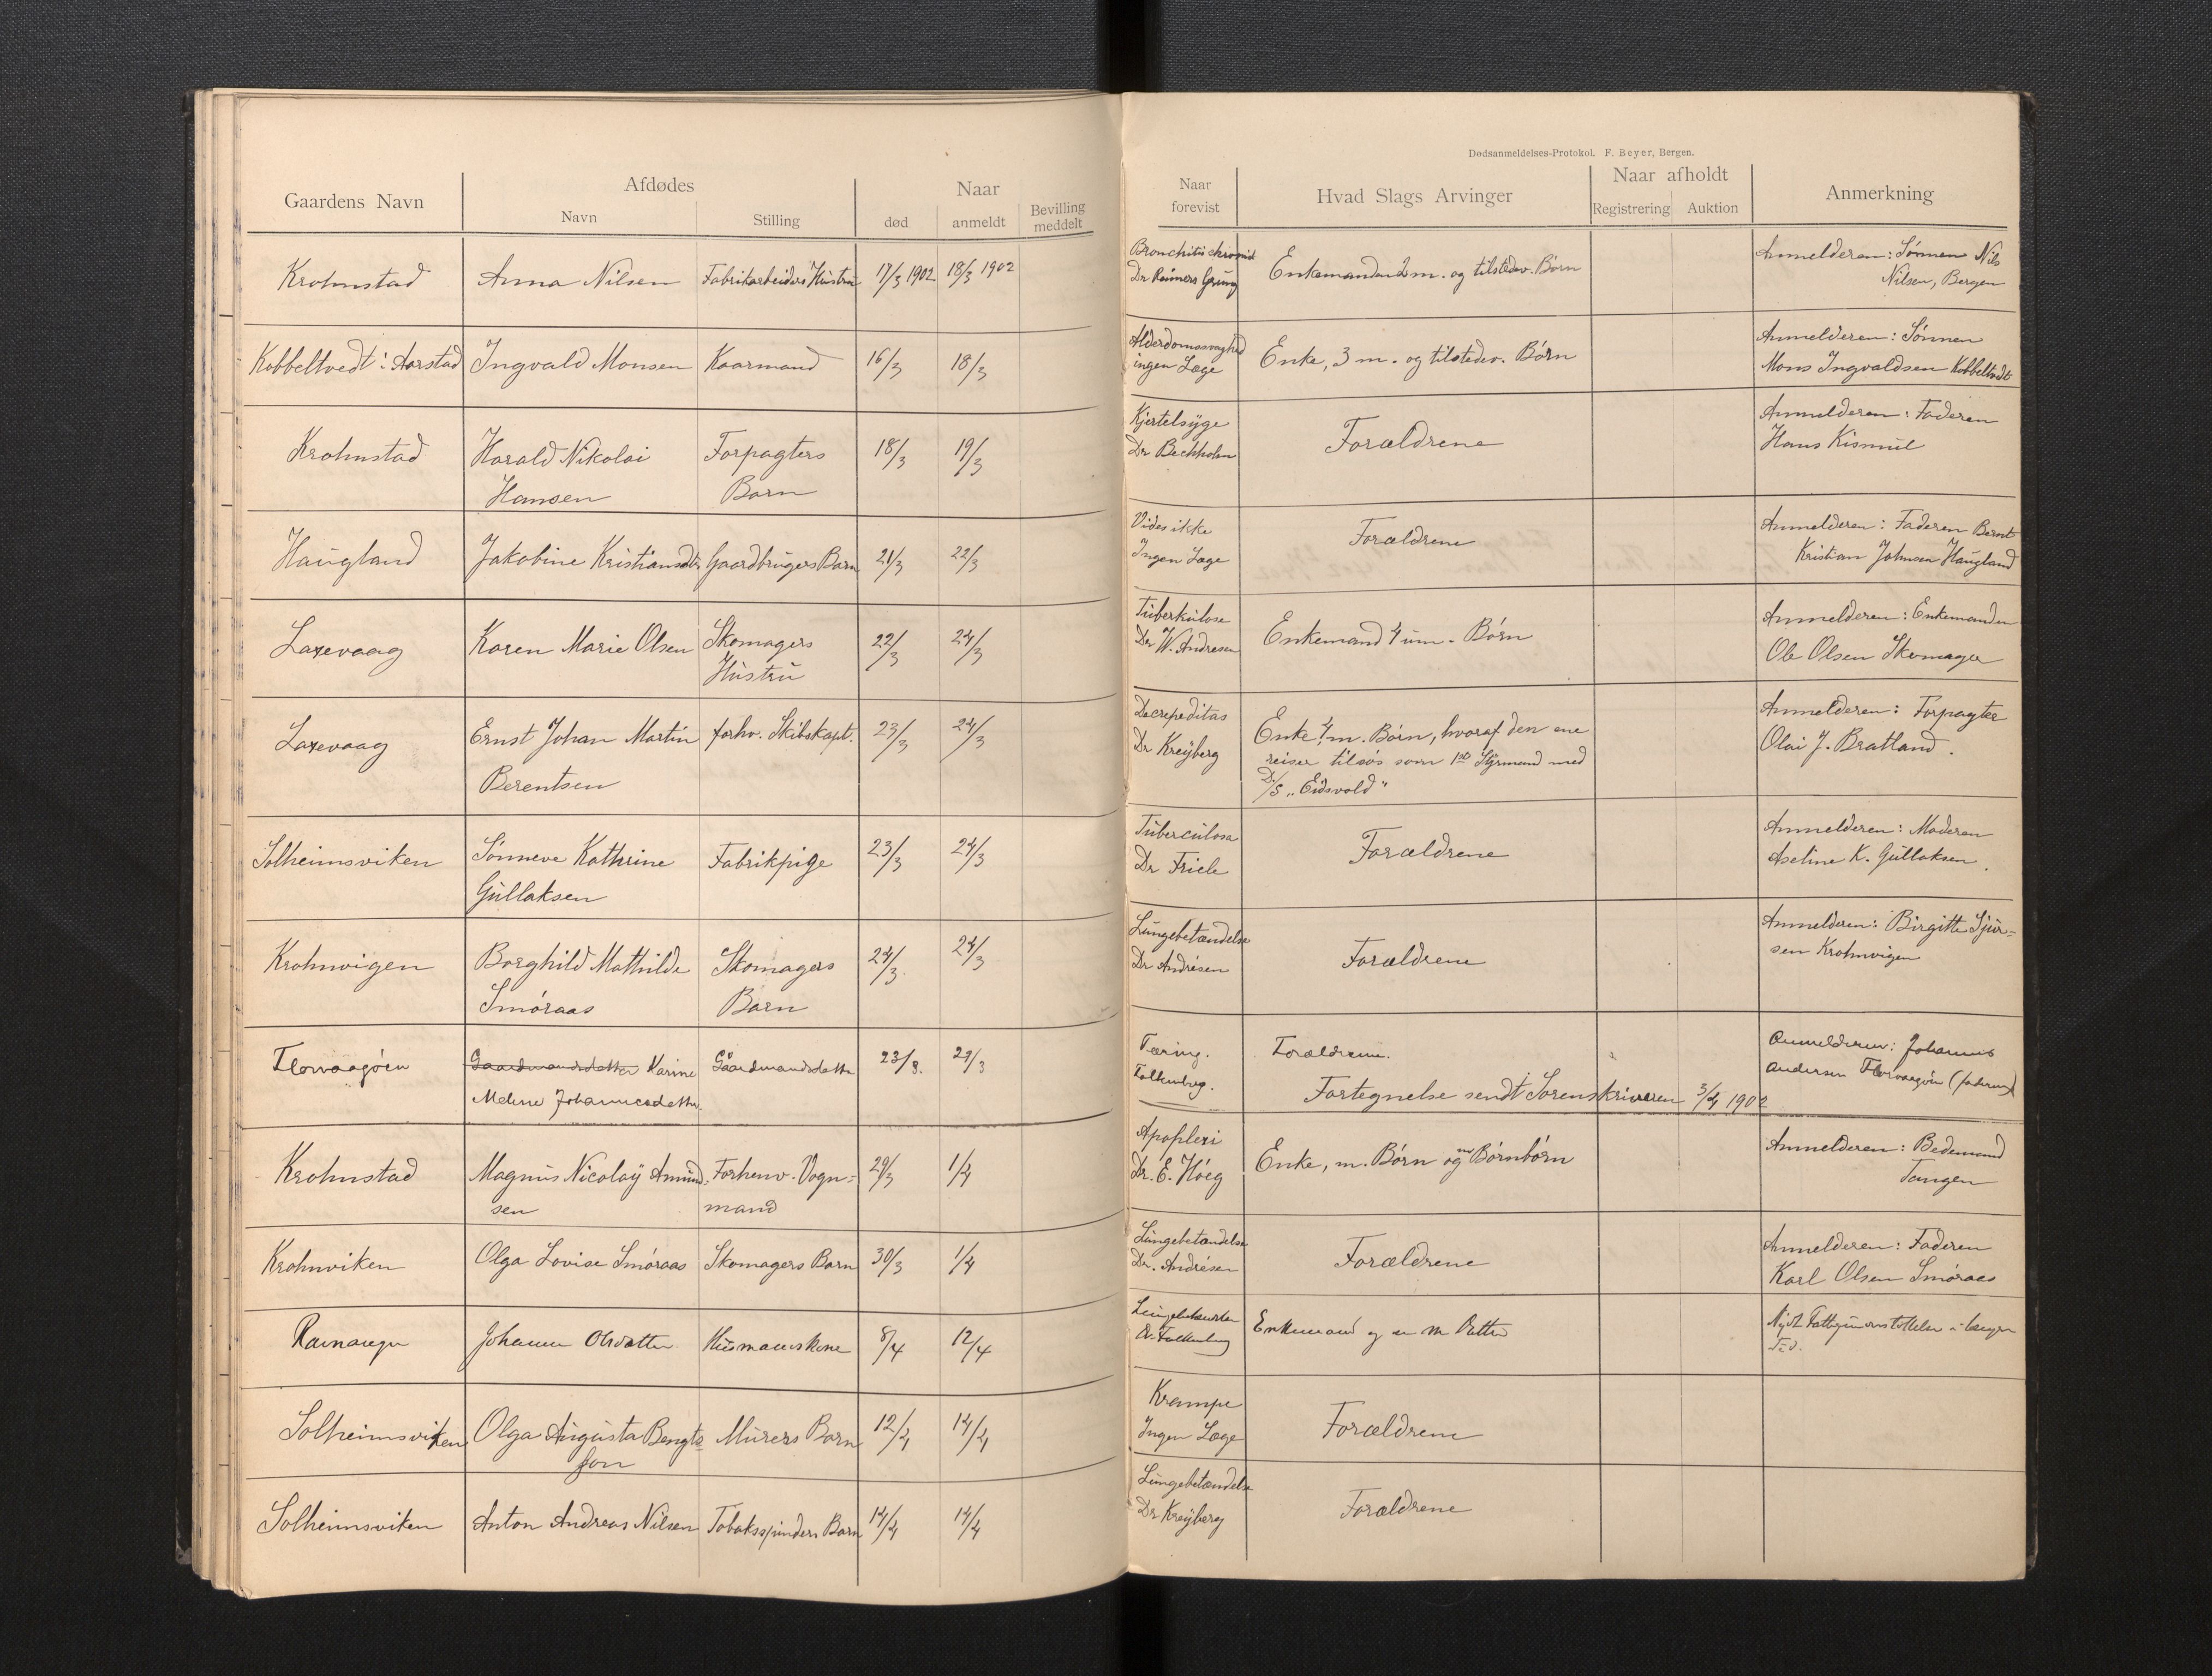 Dødsanmeldelses-Protokol. F. Beyer, Bergen.
Gaardens Navn
Afdødes
Navn
Stilling
Naar
død
anmeldt
Bevilling meddelt
Naar forevist
Hvad Slags Arvinger
Naar afholdt
Registrering
Auktion
Anmerkning
Krohnstad Anna Nilsen Fabrikarbeiders Hustru 17/3 1902 18/3 1902 Bronchitis chronic Enkemanden 2 m. og tilstedev. Børn Anmelderen: Sønnen Nils
Dr Reimers Grung Nilsen, Bergen
Kobbeltvedt i Aarstad Ingvald Monsen Kaarmand 16/3 18/3 Alderdomssvaghed Enke, 3 m. og tilstedev. Børn Anmelderen: Sønnen
ingen Læge Mons Ingvaldsen Kobbeltvedt
Krohnstad Harald Nikolai Forpagters 18/3 19/3 Kjertelsyge Forældrene Anmelderen: Faderen
Hansen Barn Dr Bechholm Hans Kismul
Haugland Jakobine Kristiansdtr Gaardbrugers Barn 21/3 22/3 Vides ikke Forældrene Anmelderen: Faderen Bernt
Ingen Læge Kristian Johnsen Haugland
Laxevaag Karen Marie Olsen Skomagers 22/3 24/3 Tuberkulose Enkemand 4 um. Børn Anmelderen: Enkemanden
Hustru Dr W. Andresen Ole Olsen Skomager
Laxevaag Ernst Johan Martin forhv. Skibskapt. 23/3 24/3 Decrepeditas Enke, 4 m. Børn, hvoraf den ene Anmelderen: Forpagter
Berentsen Dr Kreyberg reiser tilsøs som 1ste Styrmand med Olai J. Bratland.
D/S „Eidsvold"
Solheimsviken Sønneve Kathrine Fabrikpige 23/3 24/3 Tuberculosa Forældrene Anmelderen: Moderen
Gullaksen Dr Friele Aseline K. Gullaksen.
Krohnvigen Borghild Mathilde Skomagers 24/3 24/3 Lungebetændelse Forældrene Anmelderen: Birgitte Sjur=
Smøraas Barn Dr Andrésen sen Krohnvigen
Florvaagøen Gaardmandsdatter Karine Gaardmandsdatter 23/3. 29/3 Tæring. Forældrene. Anmelderen: Johannes
Meline Johannesdatter. Falkenberg. Andersen Florvaagøen (faderen)
Fortegnelse sendt Sorenskriveren 3/4 1902
Krohnstad Magnus Nicolaÿ Amund= Forhenv. Vogn= 29/3 1/4 Apoplexi Enke, m. Børn og m Børnbørn Anmelderen: Bedemand
sen mand Dr. E. Høeg Tangen
Krohnviken Olga Lovise Smøraas Skomagers Barn 30/3 1/4 Lungebetændelse Forældrene Anmelderen: Faderen
Dr. Andrésen Karl Olsen Smøraas
Johanne Olsdatter Husmandskone 8/4 12/4 Enkemand og en m Datter
Dr. Falkenberg Tid.
Solheimsviken Olga Augusta Bengts Murers Barn 12/4 14/4 Krampe Forældrene
son Ingen Læge
Solheimsviken Anton Andreas Nilsen Tobaksspinders Barn 14/4 14/4 Lungebetændelse Forældrene
Dr Kreyberg